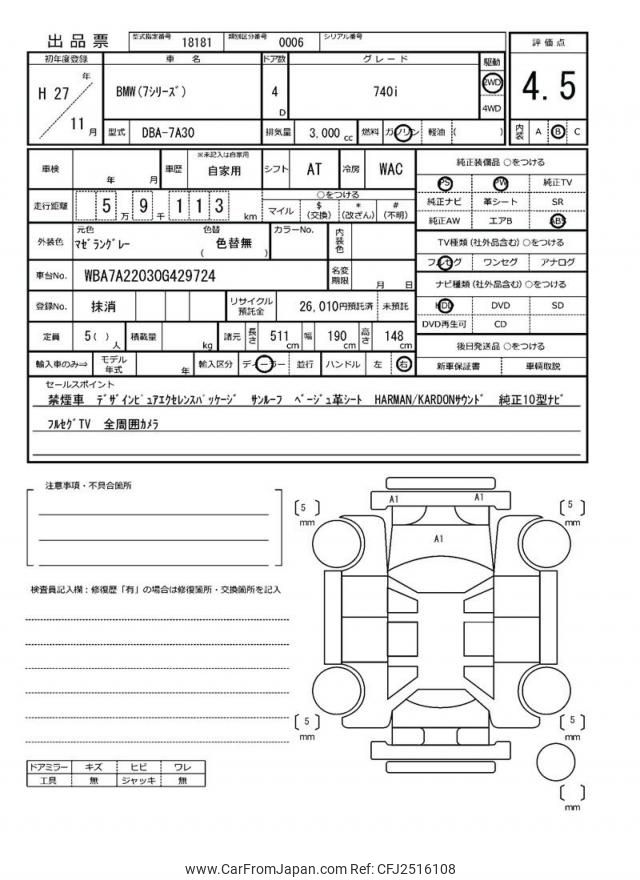 出品票
型式指定番号 18181 類別区分番号 0006 シリアル番号
初年度登録 車名 ドア数 グレード 駆動 評価点
H 27 年 11 月
BMW(7ｼﾘｰｽﾞ) 4 D 740i 2WD 4WD
4.5
型式 DBA-7A30 排気量 3,000 cc 燃料 ガソリン 軽油 ( )
内装 A B C
車検 年 月 車歴 ※未記入は自家用 自家用 シフト AT 冷房 WAC
走行距離 5 万 9 千 1 1 3 km
○をつける
マイル $(交換) *(改ざん) #(不明)
外装色 元色 ﾏｾﾞﾗﾝｸﾞﾚｰ 色替 ( 色替無 ) カラーNo. 内装色
車台No. WBA7A22030G429724 名変期限 月 日
登録No. 抹消 リサイクル預託金 26,010円預託済 未預託
定員 5( ) 人 積載量 kg 諸元 長さ 511 cm 幅 190 cm 高さ 148 cm
輸入車のみ⇨ モデル年式 年 輸入区分 ディーラー 並行 ハンドル 左 右
純正装備品 ○をつける
PS PW 純正TV
純正ナビ 革シート SR
純正AW エアB ABS
TV種類(社外品含む) ○をつける
フルセグ ワンセグ アナログ
ナビ種類(社外品含む) ○をつける
HDD DVD SD
DVD再生可 CD
後日発送品 ○をつける
新車保証書 車輌取説
セールスポイント
禁煙車 ﾃﾞｻﾞｲﾝﾋﾟｭｱｴｸｾﾚﾝｽﾊﾟｯｹｰｼﾞ ｻﾝﾙｰﾌ ﾍﾞｰｼﾞｭ革ｼｰﾄ HARMAN/KARDONｻｳﾝﾄﾞ 純正10型ﾅﾋﾞ
ﾌﾙｾｸﾞTV 全周囲ｶﾒﾗ
注意事項・不具合箇所
検査員記入欄：修復歴「有」の場合は修復箇所・交換箇所を記入
A1 A1
A1
5 mm
5 mm
5 mm
5 mm
mm
ドアミラー キズ ヒビ ワレ
工具 無 ジャッキ 無
www.CarFromJapan.com Ref: CFJ2516108